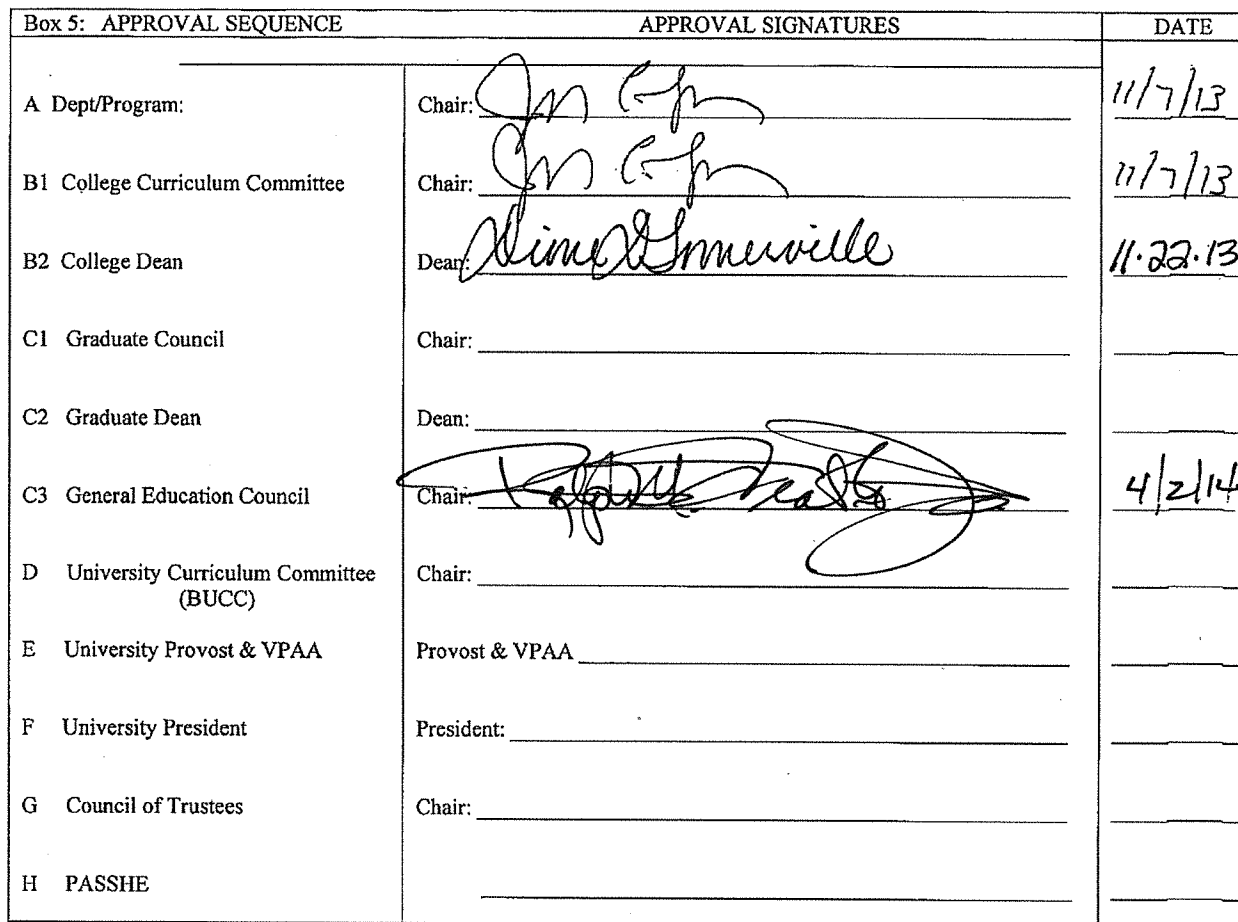 Box 5: APPROVAL SEQUENCE APPROVAL SIGNATURES DATE
A Dept/Program: Chair: 11/7/13
B1 College Curriculum Committee Chair: 11/7/13
B2 College Dean Dean: 11.22.13
C1 Graduate Council Chair:
C2 Graduate Dean Dean:
C3 General Education Council Chair: 4/2/14
D University Curriculum Committee Chair:
(BUCC)
E University Provost & VPAA Provost & VPAA
F University President President:
G Council of Trustees Chair:
H PASSHE